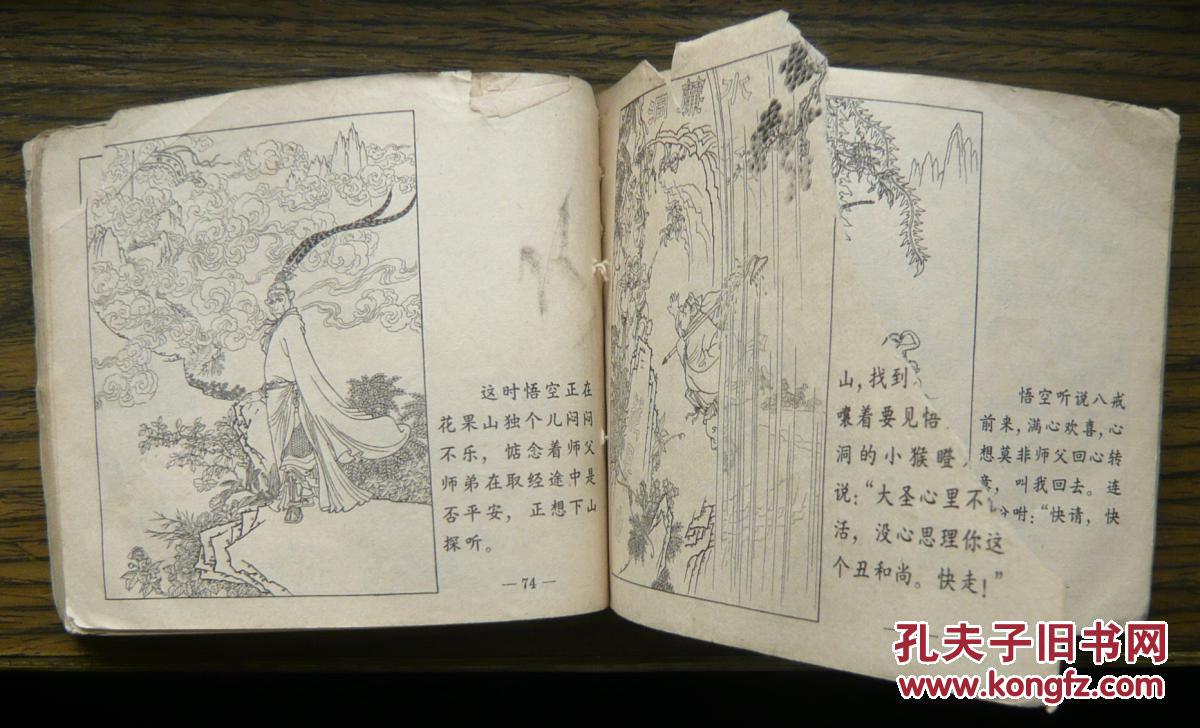 这时悟空正在
花果山独个儿闷闷
不乐，惦念着师父
师弟在取经途中是
否平安，正想下山
探听。
—74—
水簾洞
山，找到
嚷着要见悟
洞的小猴瞪
说：“大圣心里不
活，没心思理你这
个丑和尚。快走！”
悟空听说八戒
前来，满心欢喜，心
想莫非师父回心转
意，叫我回去。连
吩咐：“快请，快
孔夫子旧书网
www.kongfz.com